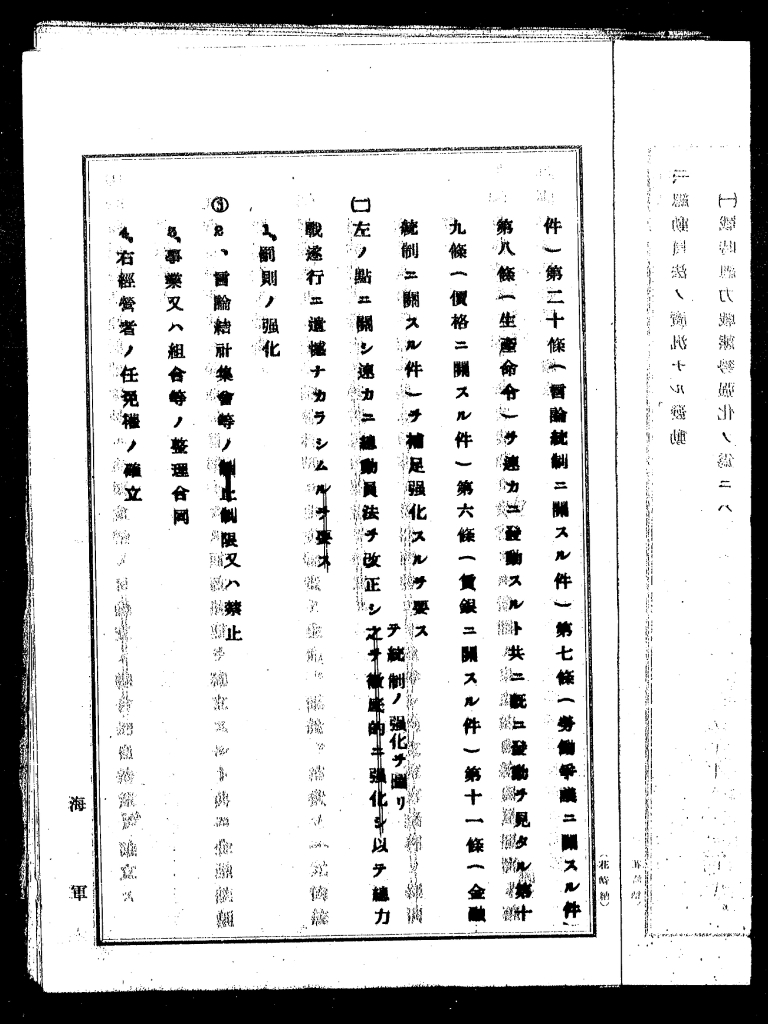 件）第二十條（言論統制ニ關スル件）第七條（勞働爭議ニ關スル件）
第八條（生產命令）ヲ速カニ發動スルト共ニ既ニ發動ヲ見タル第十
九條（價格ニ關スル件）第六條（賃銀ニ關スル件）第十一條（金融
統制ニ關スル件）ヲ補足强化スルヲ要ス
テ統制ノ强化ヲ圖リ
㈡左ノ點ニ關シ速カニ總動員法ヲ改正シ之ヲ徹底的ニ强化シ以テ總力
戰遂行ニ遺憾ナカラシムルヲ要ス
1、罰則ノ强化
③2、言論結社集會等ノ制限又ハ禁止
3、事業又ハ組合等ノ整理合同
4、右經營者ノ任免權ノ確立
海軍